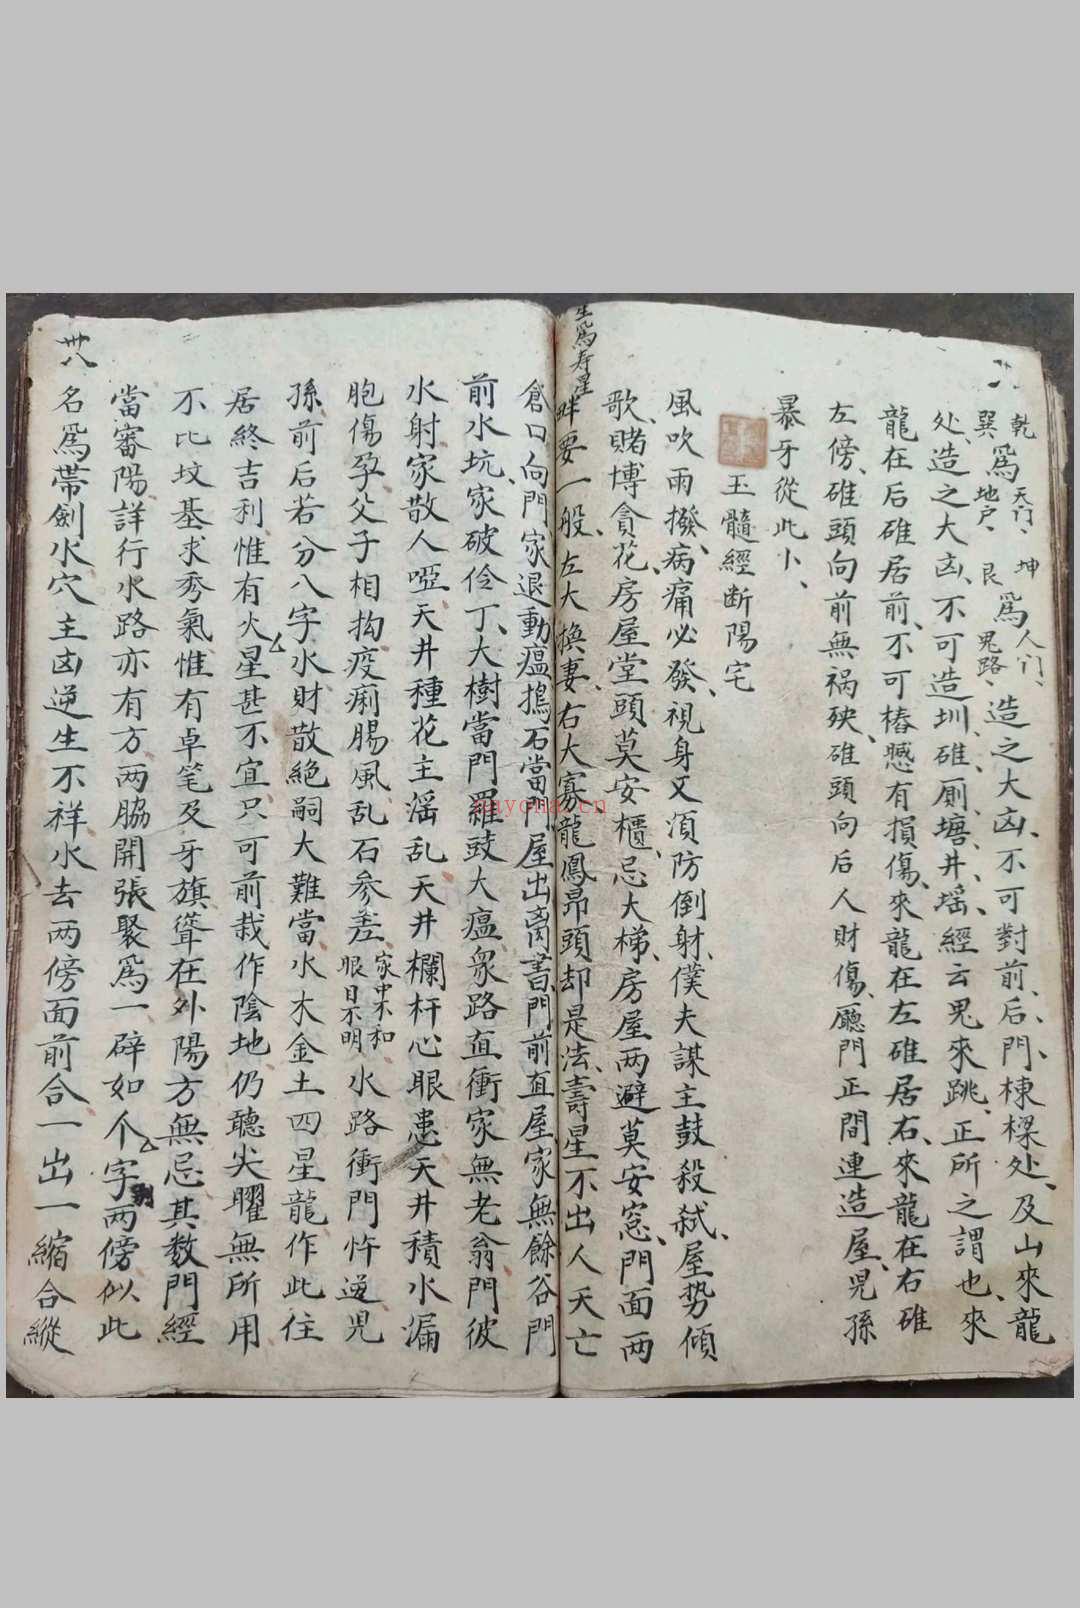 乾為天门、坤為人门、造之大凶、不可對前后門、棟樑处、及山來龍
巽為地户、艮為鬼路、
处、造之大凶、不可造圳碓、厠塘井瑶、經云鬼來跳、正所之謂也、來
龍在后碓居前、不可樁憾有損傷、來龍在左碓居右、來龍在右碓
左傍、碓頭向前無祸殃、碓頭向后人財傷、廳門正間連造屋、児孫
暴牙從此卜、
玉髓經断陽宅
風吹雨撥、病痛必發、視身又湏防倒射、僕夫謀主鼓殺弑、屋势傾
歌、賭博貪花、房屋堂頭莫安櫃、忌大梯、房屋两避莫安窓、門面两
畔要一般、左大換妻、右大寡、龍鳳昂頭却是法、壽星不出人夭亡
生爲寿星
創口向門、家退動瘟搗石當門、屋出离書、門前直屋、家無餘谷、門
前水坑、家破伶丁、大樹當門、羅鼓大瘟、衆路直衝、家無老翁、門彼
水射、家散人啞、天井種花、主滛乱、天井欄杆心眼患、天井積水漏
胞傷孕、父子相拗疫痢腸風、乱石參差、家中不和眼目不明、水路衝門忤逆児
孫、前后若分八字水、財散絶嗣大難當、水木金土四星龍、作此住
居終吉利、惟有火星甚不宜、只可前栽作陰地、仍聽尖曜無所用
不比坟基求秀氣、惟有卓笔及牙旗、聳在外陽方無忌、其数門經
當審陽、詳行水路亦有方、两脇開張聚爲一、辟如个字两傍似、此
名爲帯劍水、穴主凶逆生不祥、水去两傍面前合、一出一縮合縱
卅八